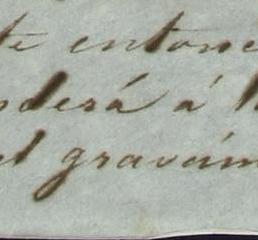 te entonc
nderá á
el gravám